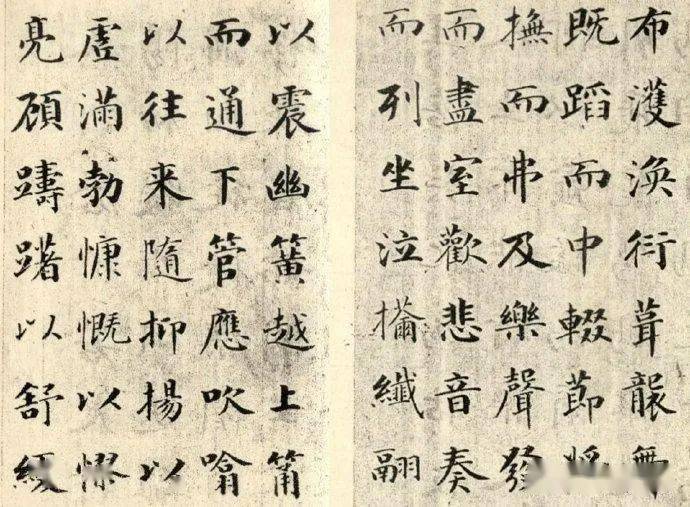 布濩渙衍葺襲無
既蹈而中輟節將
撫而弗及樂聲發
而盡室歡悲音奏
而列坐泣纖翮
以震幽簧越上筩
而通下管應吹噏
以往来隨抑揚以
虛滿勃慷慨以憀
亮頋躊躇以舒緩